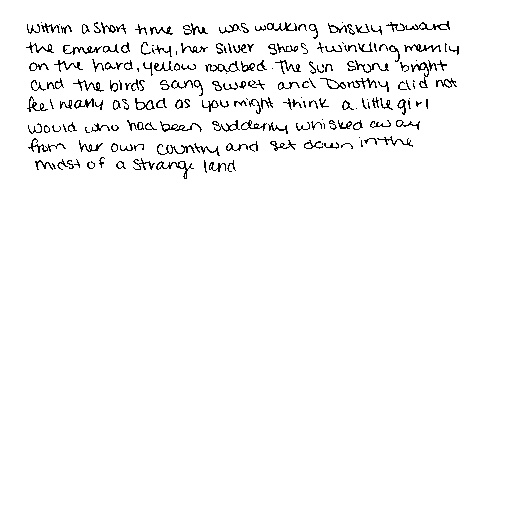 Within a short time she was walking briskly toward
the Emerald City, her Silver Shoes twinkling merrily
on the hard, yellow roadbed. The sun shone bright
and the birds sang sweet and Dorothy did not
feel nearly as bad as you might think a little girl
would who had been suddenly whisked away
from her own country and set down in the
midst of a strange land